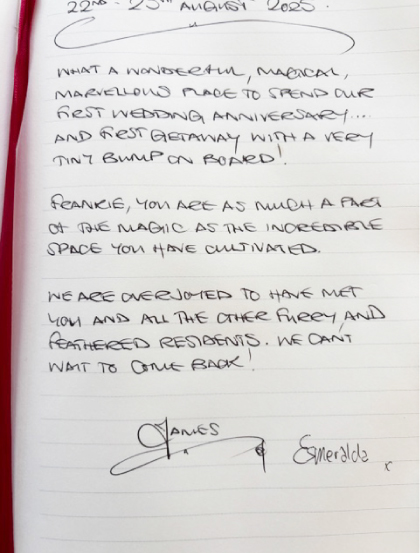 22ND - 25TH AUGUST 2025.
WHAT A WONDERFUL, MAGICAL,
MARVELLOUS PLACE TO SPEND OUR
FIRST WEDDING ANNIVERSARY...
AND FIRST GETAWAY WITH A VERY
TINY BUMP ON BOARD!
FRANKIE, YOU ARE AS MUCH A PART
OF THE MAGIC AS THE INCREDIBLE
SPACE YOU HAVE CULTIVATED.
WE ARE OVERJOYED TO HAVE MET
YOU AND ALL THE OTHER FURRY, AND
FEATHERED RESIDENTS. WE CAN'T
WAIT TO COME BACK!
JAMES
Esmeralda x